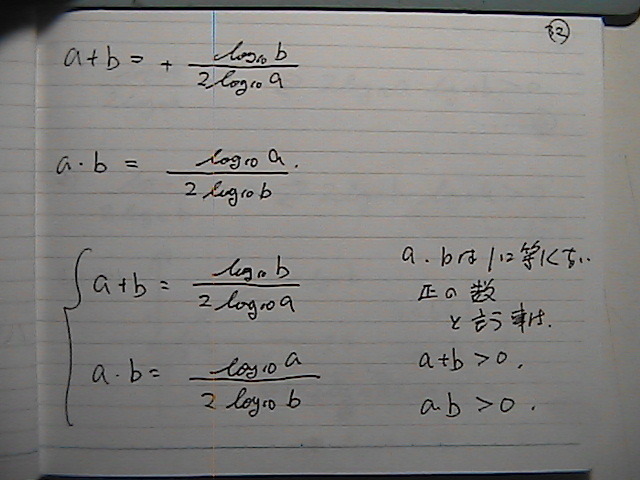 32
a+b = + log₁₀ b / 2 log₁₀ a
a・b = log₁₀ a / 2 log₁₀ b.
a+b = log₁₀ b / 2 log₁₀ a
a・b = log₁₀ a / 2 log₁₀ b
a . bは1に等しくない
正の数
と言う事は.
a+b > 0 .
a b > 0 .